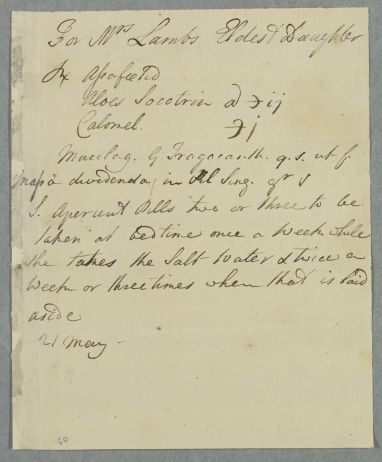 For Mrs Lambs Eldest Daughter
℞ Asafoetid
Aloes Socotrin a ℈ij
Calomel. ℈j
Mucilag. G Tragacanth. q.s. ut f.
massa dividenda, in Pil Sing. gr 5
S. Aperient Pills two or three to be
taken at bedtime once a Week while
She takes the Salt Water & twice a
Week or three times when that is laid
aside
21 May